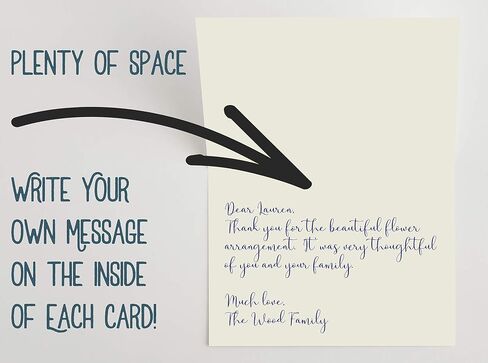 PLENTY OF SPACE
WRITE YOUR
OWN MESSAGE
ON THE INSIDE
OF EACH CARD!
Dear Lauren,
Thank you for the beautiful flower
arrangement. It was very thoughtful
of you and your family.
Much love,
The Wood Family